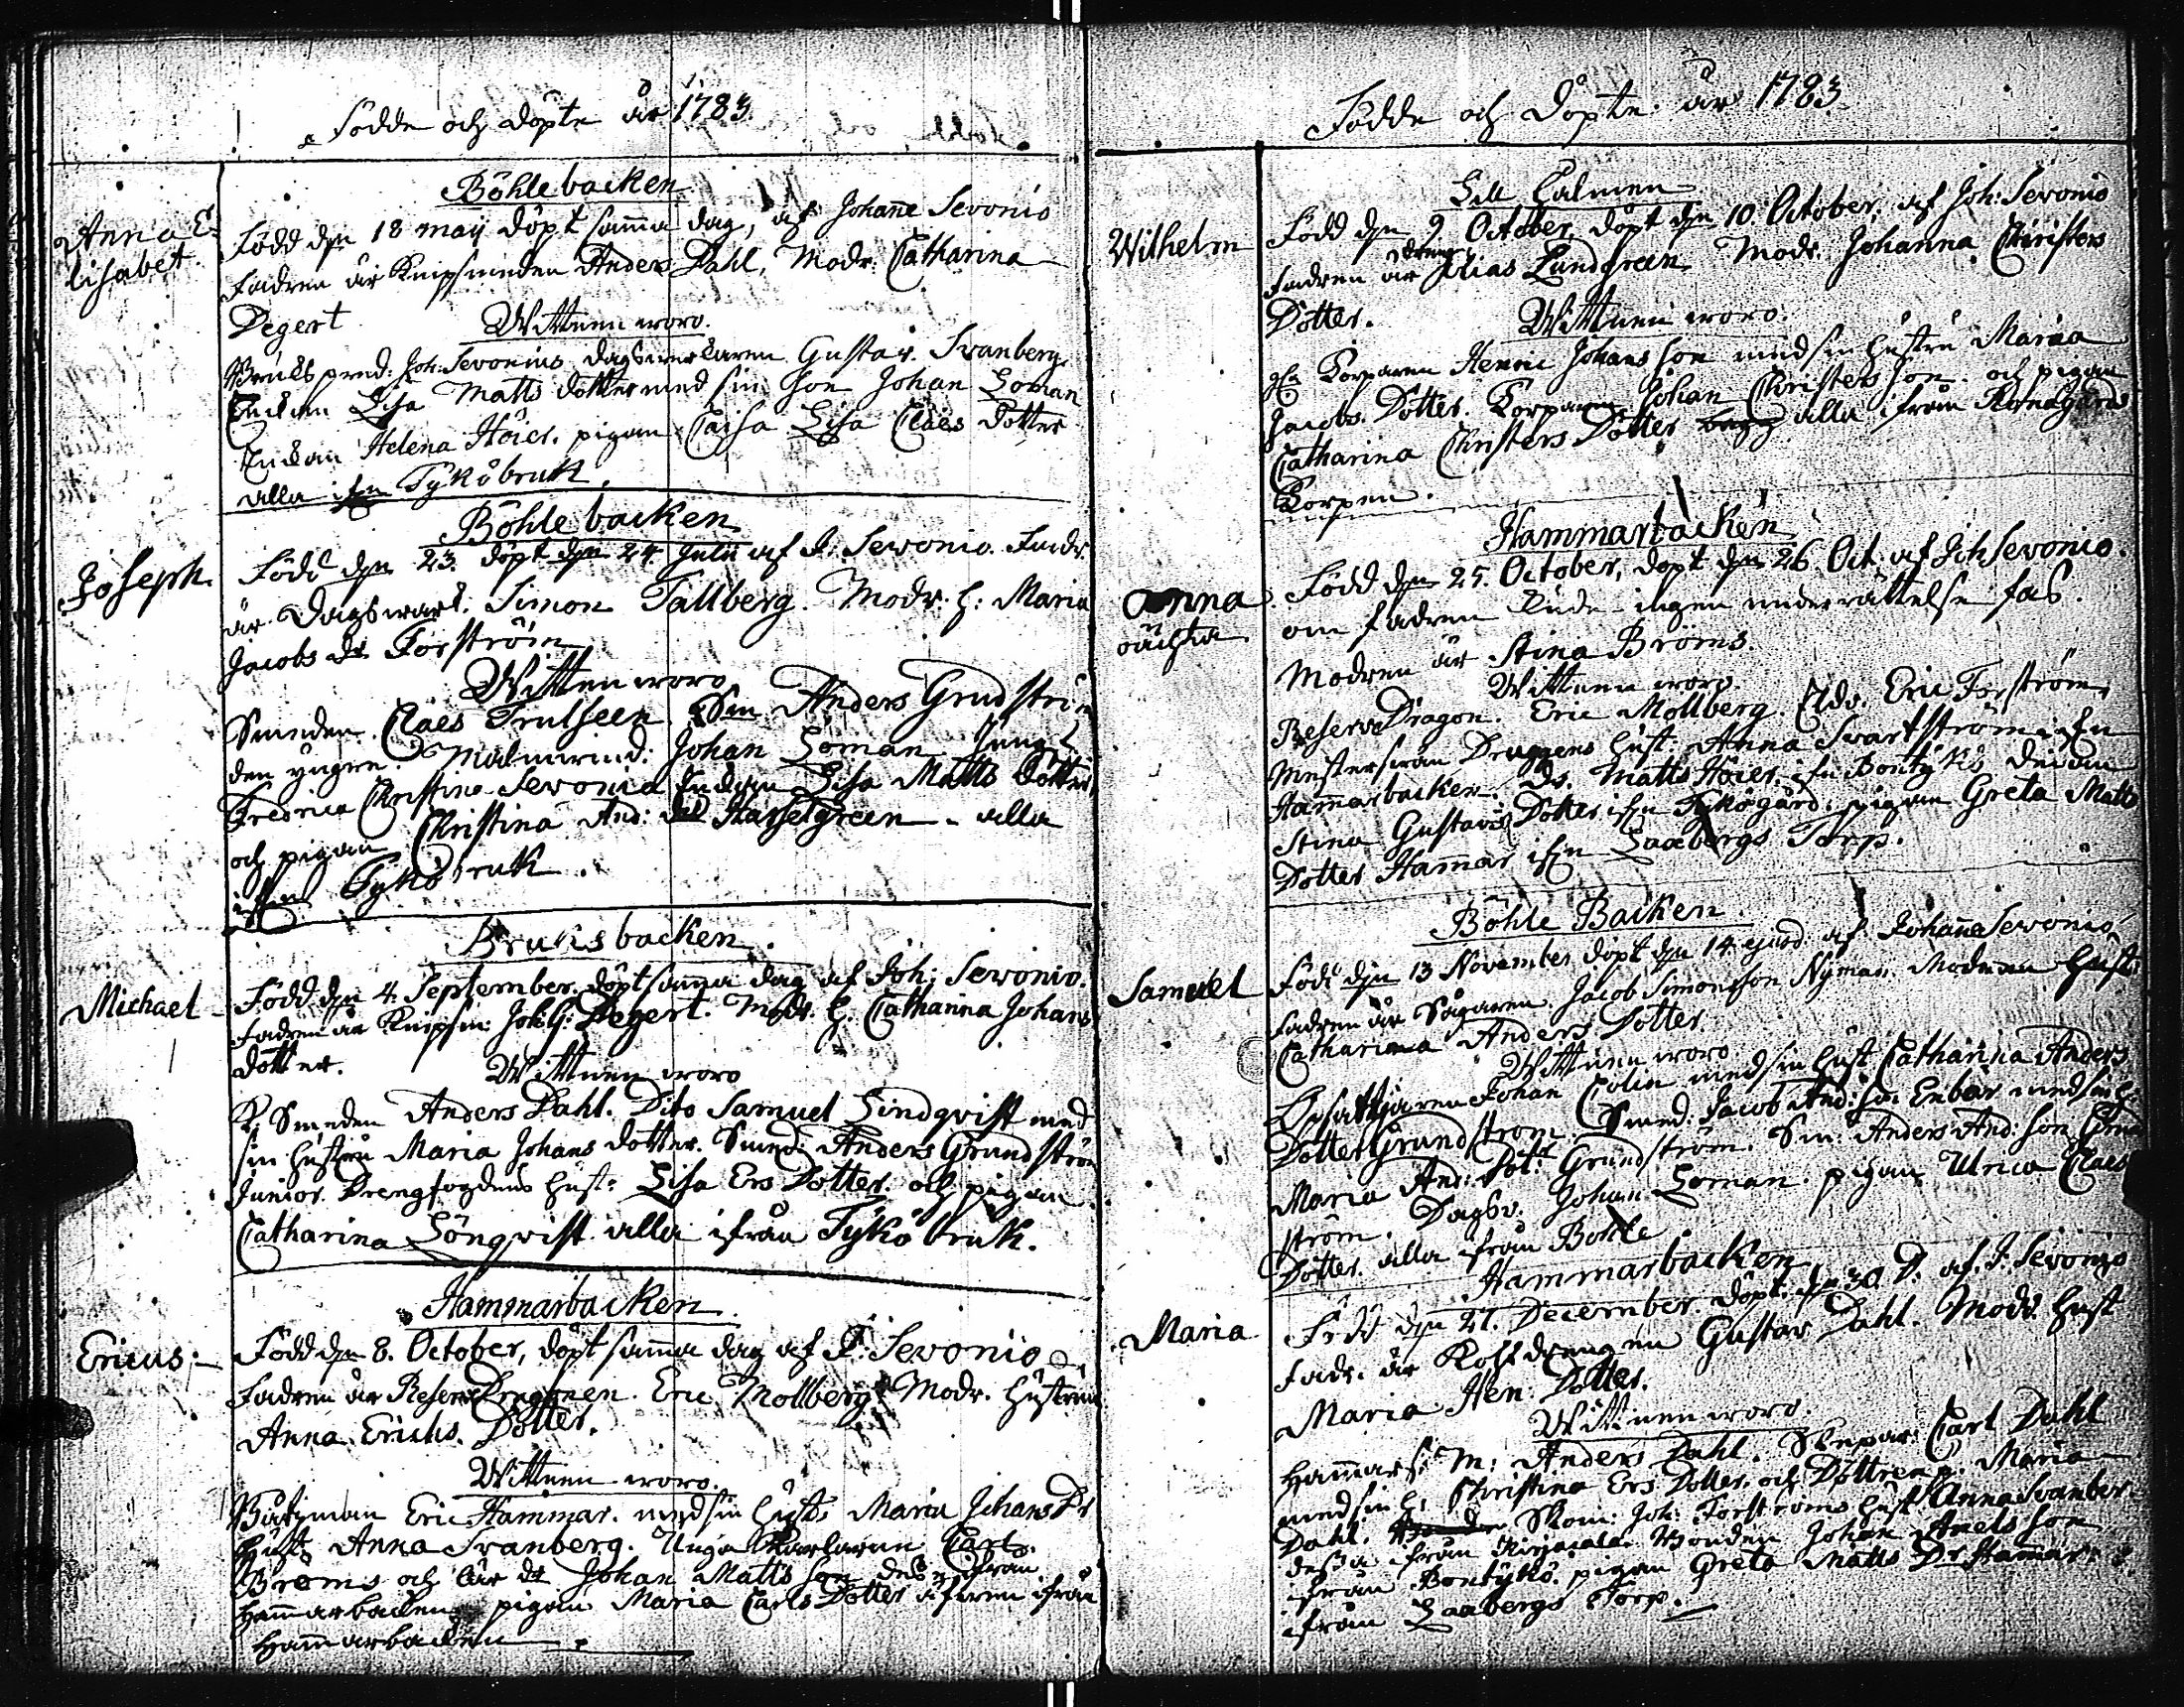 Födde och döpte år 1783.
Böhlebacken
Anna E-
lisabet.
Född den 18 maij döpt samma dag, af Johanne Sevonio
Fadren är Knipsmeden Anders Dahl, Modr: Catharina
Degert
Wittnen woro.
Bruks pred: Joh: Sevonius dagswerkaren Gustav. Svanberg.
Enkan Lisa Matts dotter med sin son Johan Loman
Enkan Helena Höier. pigan Caisa Lisa Claes dotter
alla ifrn Tykö bruk.
Böhle backen
Joseph.
Född den 23. döpt den 24. Julii af J: Sevonio. Fadr.
är Dagswark: Simon Tallberg. Modr. h: Maria
Jacobs dr Forström
Wittnen woro
Smeden Claes Trulseen Sm Anders Grudström
den yngre. Johan Loman Jungf
Fredrica Christina Sevonia Enkan Lisa Matts dotter
och pigan Christina And: dr Hasselgreen - alla
ifrn Tykö bruk.
Bruks backen.
Michael
Född den 4. September. döpt samma dag af Joh: Sevonio.
Fadren är Knipsm: Joh: G: Degert. Modr. h. Catharina Johans
dotter.
Wittnen woro
K. Smeden Anders Dahl. Dito Samuel Lindqvist med
sin hustru Maria Johans dotter. Smed: Anders Grundström
Junior. Drengfogdens hust: Lisa Ers Dotter och pigan
Catharina Lönqvist alla ifrån Tykö bruk.
Hammarbacken
Ericus.
Född den 8. October, döpt samma dag af J: Sevonio
Fadren är Reserv Dragonen. Eric Mollberg Modr. Hustrun
Anna Erichs. Dotter.
Wittnen woro.
Båtzman Eric Hammar. med sin hust: Maria Johans Dr
Hust: Anna Svanberg. Unga Karlarne Carl
Broms och Johan Matts son ifrån
Hammarbacken pigan Maria Carls Dotter äfwen ifrån
Hammarbacken.
Födde och döpte år 1783.
Wilhelm
Född den 9 October, döpt den 10. October, af Joh: Sevonio
Fadren är dreng Elias Lundgreen. Modr: Johanna Christers
Dotter.
Wittnen woro.
Torparen Henric Johans son med sin hustru Maria
Jacobs. Dotter. Torparen Johan Christers son. och pigan
Catharina Christers Dotter alla ifrån
Torpen.
Hammarbacken
Anna
oächta
Född den 25. October, döpt den 26 Oct. af Joh Sevonio.
om fadren kunde ingen underrättelse fås.
Modren är Stina Bröms.
Wittnen woro
Reserv Dragon. Eric Mollberg. Eric Forström,
hust: Anna Svartström ifrn
Hammarbacken. Dr. Matts Höier. ifrn Bontykö
Stina Gustavs Dotter ifrn Tykögård. pigan Greta Matts
Dotter Hammar ifrn Laabergs Torp.
Böhle Backen.
Samuel
Född den 13 November döpt den 14 ejusd: af Johanne Sevonio
Fadren är Sågaren. Jacob Simonsson Nyman. Modren hust:
Catharina Anders Dotter.
Wittnen woro
Johan Colin med sin hust Catharina Anders
Dotter Grundström. Smed: Jacob And: son Enbär med sin h:
Maria And: Dot: Grundström. Sm: Anders And: son Grund
ström. Dagsv: Johan Loman. pigan Ulrica Claes
Dotter. alla ifrån Bohle.
Hammarbacken
Maria
Född den 27. December. döpt den 30 D: af. J: Sevonio
Fadr. är Kolsdrengen Gustav Dahl. Modr. Hust
Maria Hen: Dotter.
Wittnen woro.
Hammars: M: Anders Dahl. Carl Dahl
med sin h: Christina Ers Dotter. och Dottren p. Maria
Dahl. Skom: Joh: Forströms hust Anna Svanber
dessa ifrån Kirjacala. Bonden Johan Axels son
ifrån Bontykö. pigan Greta Matts Dr Hammar
ifrån Laabergs Torp.